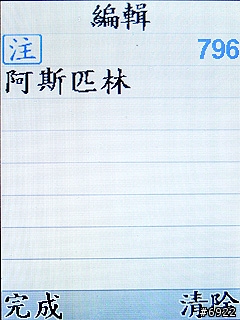 編輯
注 796
阿斯匹林
完成 清除
#6922